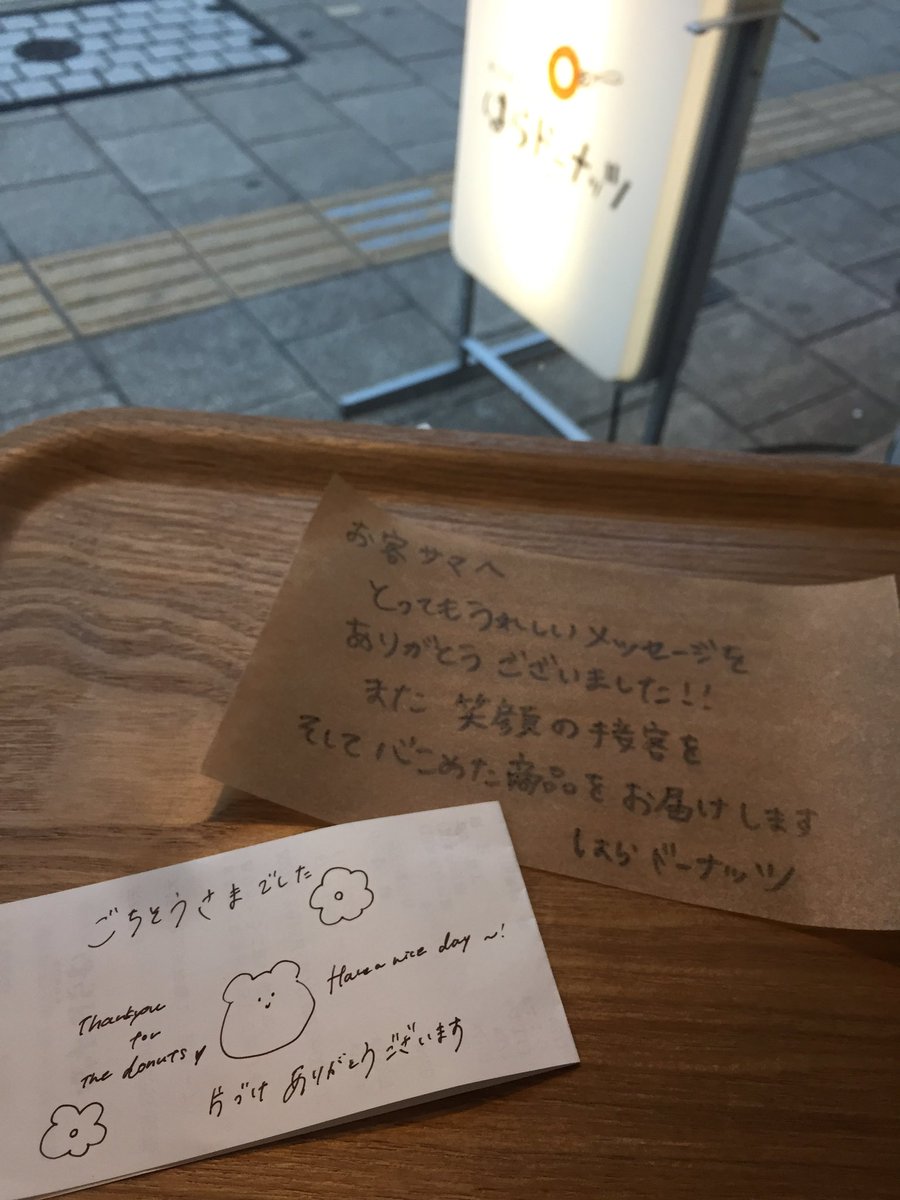 はらドーナッツ
お客サマへ
とってもうれしいメッセージを
ありがとうございました!!
また 笑顔の接客を
そして心こめた商品をお届けします
はらドーナッツ
ごちそうさまでした
Have a nice day ~!
Thankyou
for
The donuts♥
片づけ ありがとうございます